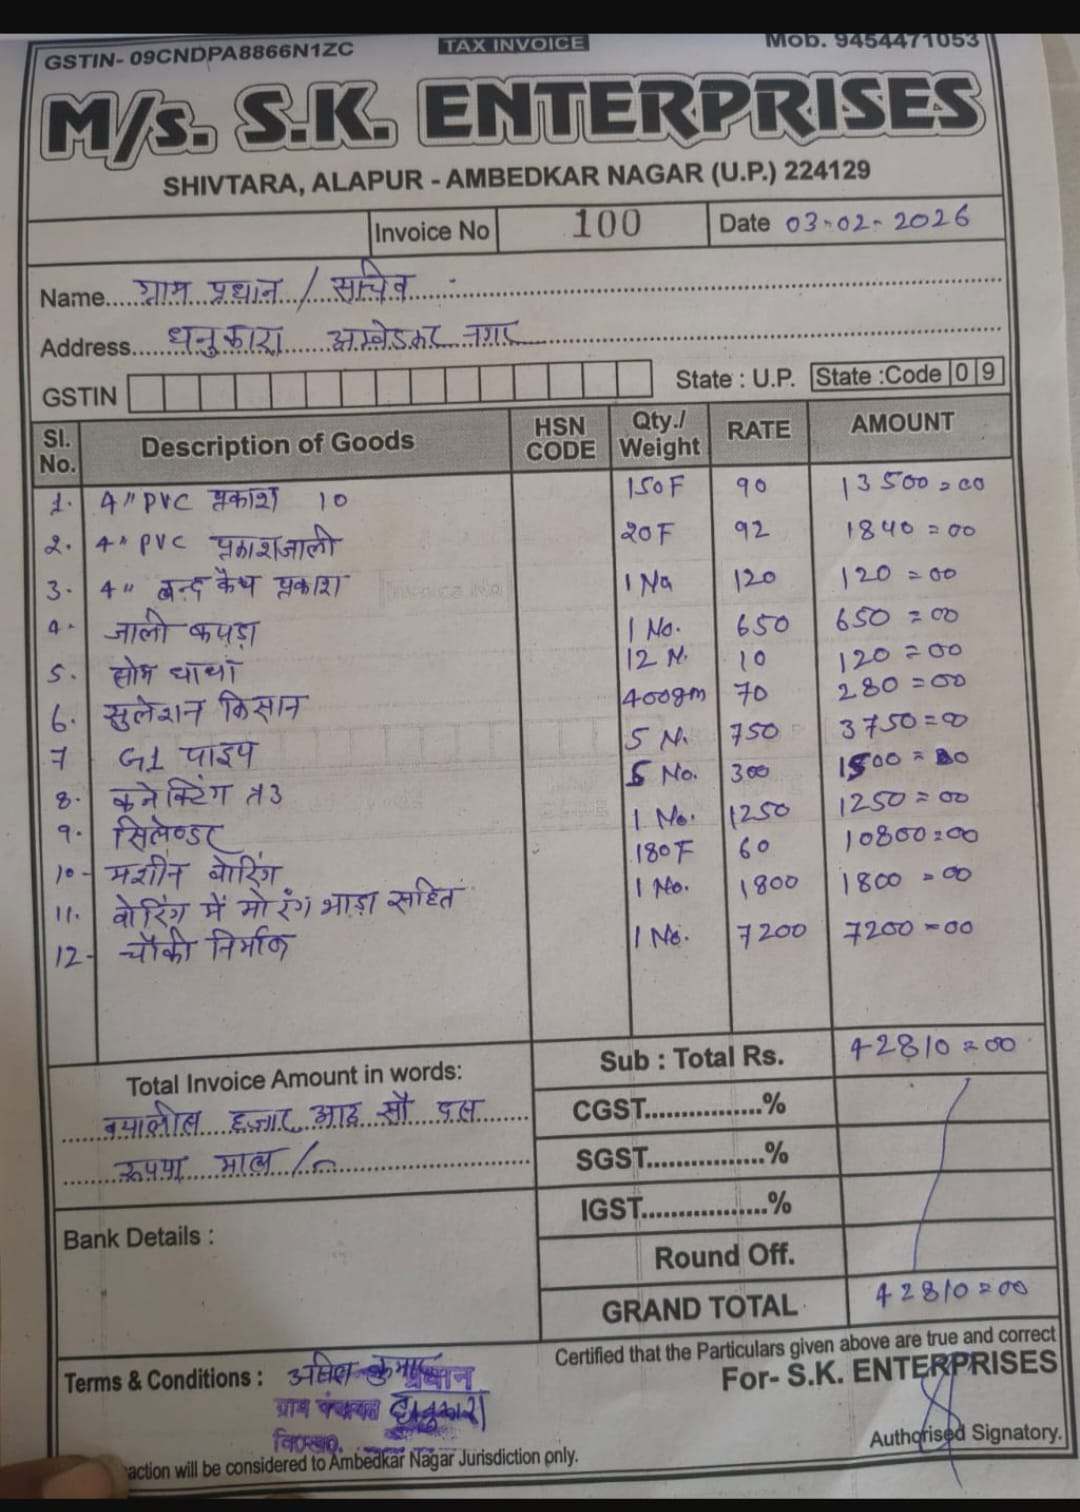 GSTIN- 09CNDPA8866N1ZC TAX INVOICE Mob. 9454471053
M/s. S.K. ENTERPRISES
SHIVTARA, ALAPUR - AMBEDKAR NAGAR (U.P.) 224129
Invoice No 100 Date 03-02-2026
Name ग्राम प्रधान / सचिव
Address धनुकारा अम्बेडकर नगर
GSTIN State : U.P. State :Code 09
Sl. No. Description of Goods HSN CODE Qty./ Weight RATE AMOUNT
1. 4" PVC प्रकाश 10 150F 90 13500=00
2. 4" PVC प्रकाश जाली 20F 92 1840=00
3. 4" बन्द कैप प्रकाश 1 No 120 120=00
4. जाली कपड़ा 1 No. 650 650=00
5. 12 N. 10 120=00
6. सुलेशन किसान 400gm 70 280=00
7 G1 पाइप 5 N. 750 3750=00
8. कनेक्टिंग 5 No. 300 1500=00
9. सिलेण्डर 1 No. 1250 1250=00
10- मशीन बोरिंग 180F 60 10800=00
11. बोरिंग में मोरंग भाड़ा सहित 1 No. 1800 1800=00
12- चौकी निर्माण 1 No. 7200 7200=00
Sub : Total Rs. 42810=00
Total Invoice Amount in words:
बयालीस हजार आठ सौ दस
रूपया मात्र /
CGST................%
SGST................%
IGST.................%
Bank Details :
Round Off.
GRAND TOTAL 42810=00
Certified that the Particulars given above are true and correct
For- S.K. ENTERPRISES
Terms & Conditions : कुमार
प्रधान
ग्राम पंचायत धनुकारा
Authorised Signatory.
action will be considered to Ambedkar Nagar Jurisdiction only.